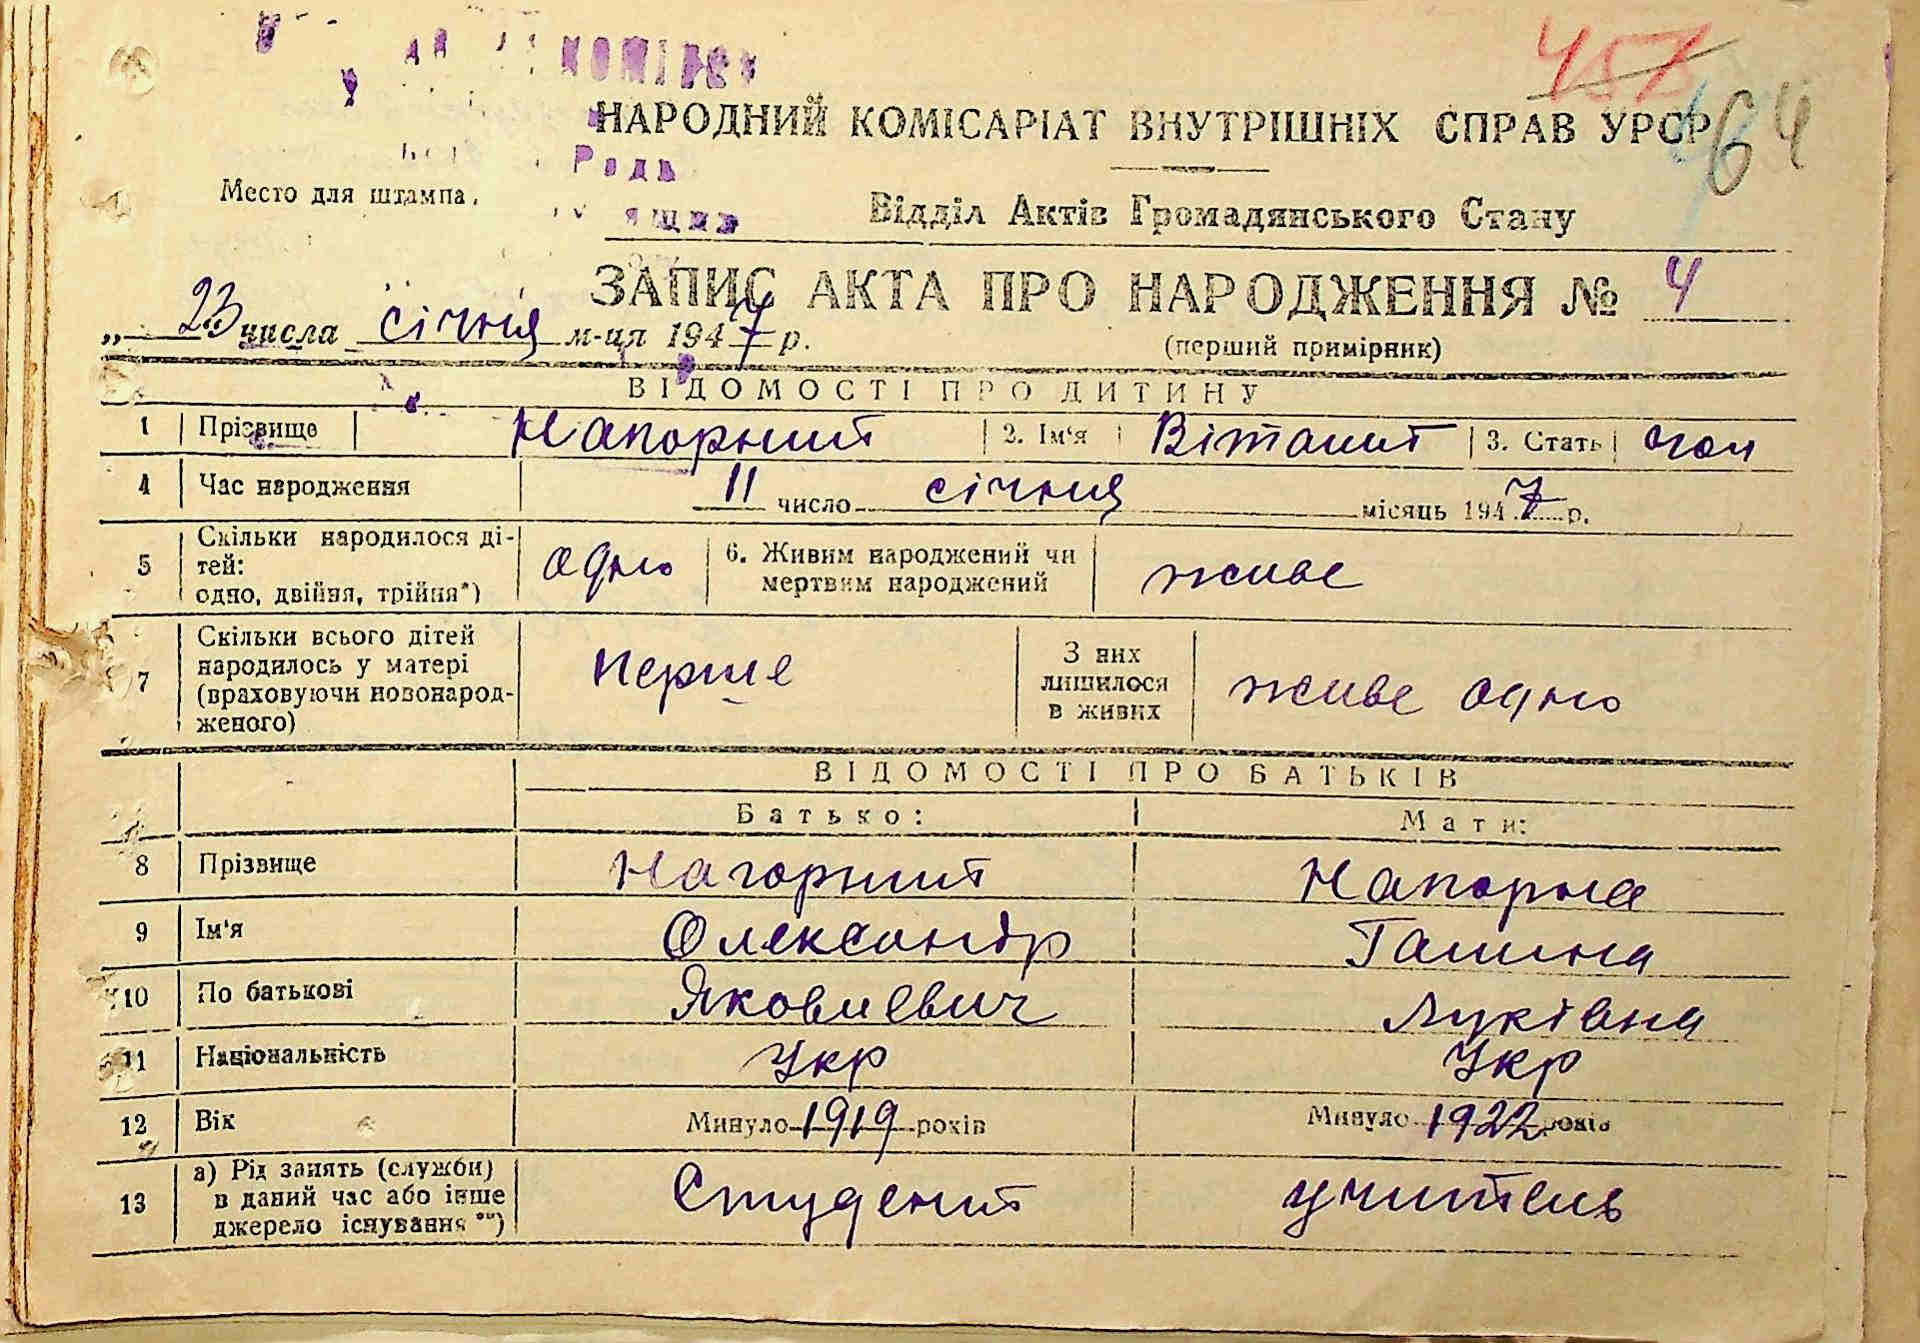 457
64
НАРОДНИЙ КОМІСАРІАТ ВНУТРІШНІХ СПРАВ УРСР
Место для штампа.
Відділ Актів Громадянського Стану
ЗАПИС АКТА ПРО НАРОДЖЕННЯ № 4
„ 23 числа січня м-ця 1947 р.
(перший примірник)
ВІДОМОСТІ ПРО ДИТИНУ
1 Прізвище Нагорний 2. Ім'я Віталий 3. Стать чол
4 Час народження 11 число січня місяць 1947 р.
5 Скільки народилося ді-
тей:
одно, двійня, трійня*)
одно
6. Живим народжений чи
мертвим народжений
живе
7 Скільки всього дітей
народилось у матері
(враховуючи новонарод-
женого)
перше
З них
лишилося
в живих
живе одно
ВІДОМОСТІ ПРО БАТЬКІВ
Батько: Мати:
8 Прізвище Нагорний Нагорна
9 Ім'я Олександр Галина
10 По батькові Яковлевич Луківна
11 Національність Укр Укр
12 Вік Минуло 1919 років Минуло 1922 років
13 а) Рід занять (служби)
в даний час або інше
джерело існування **)
Студент учитель